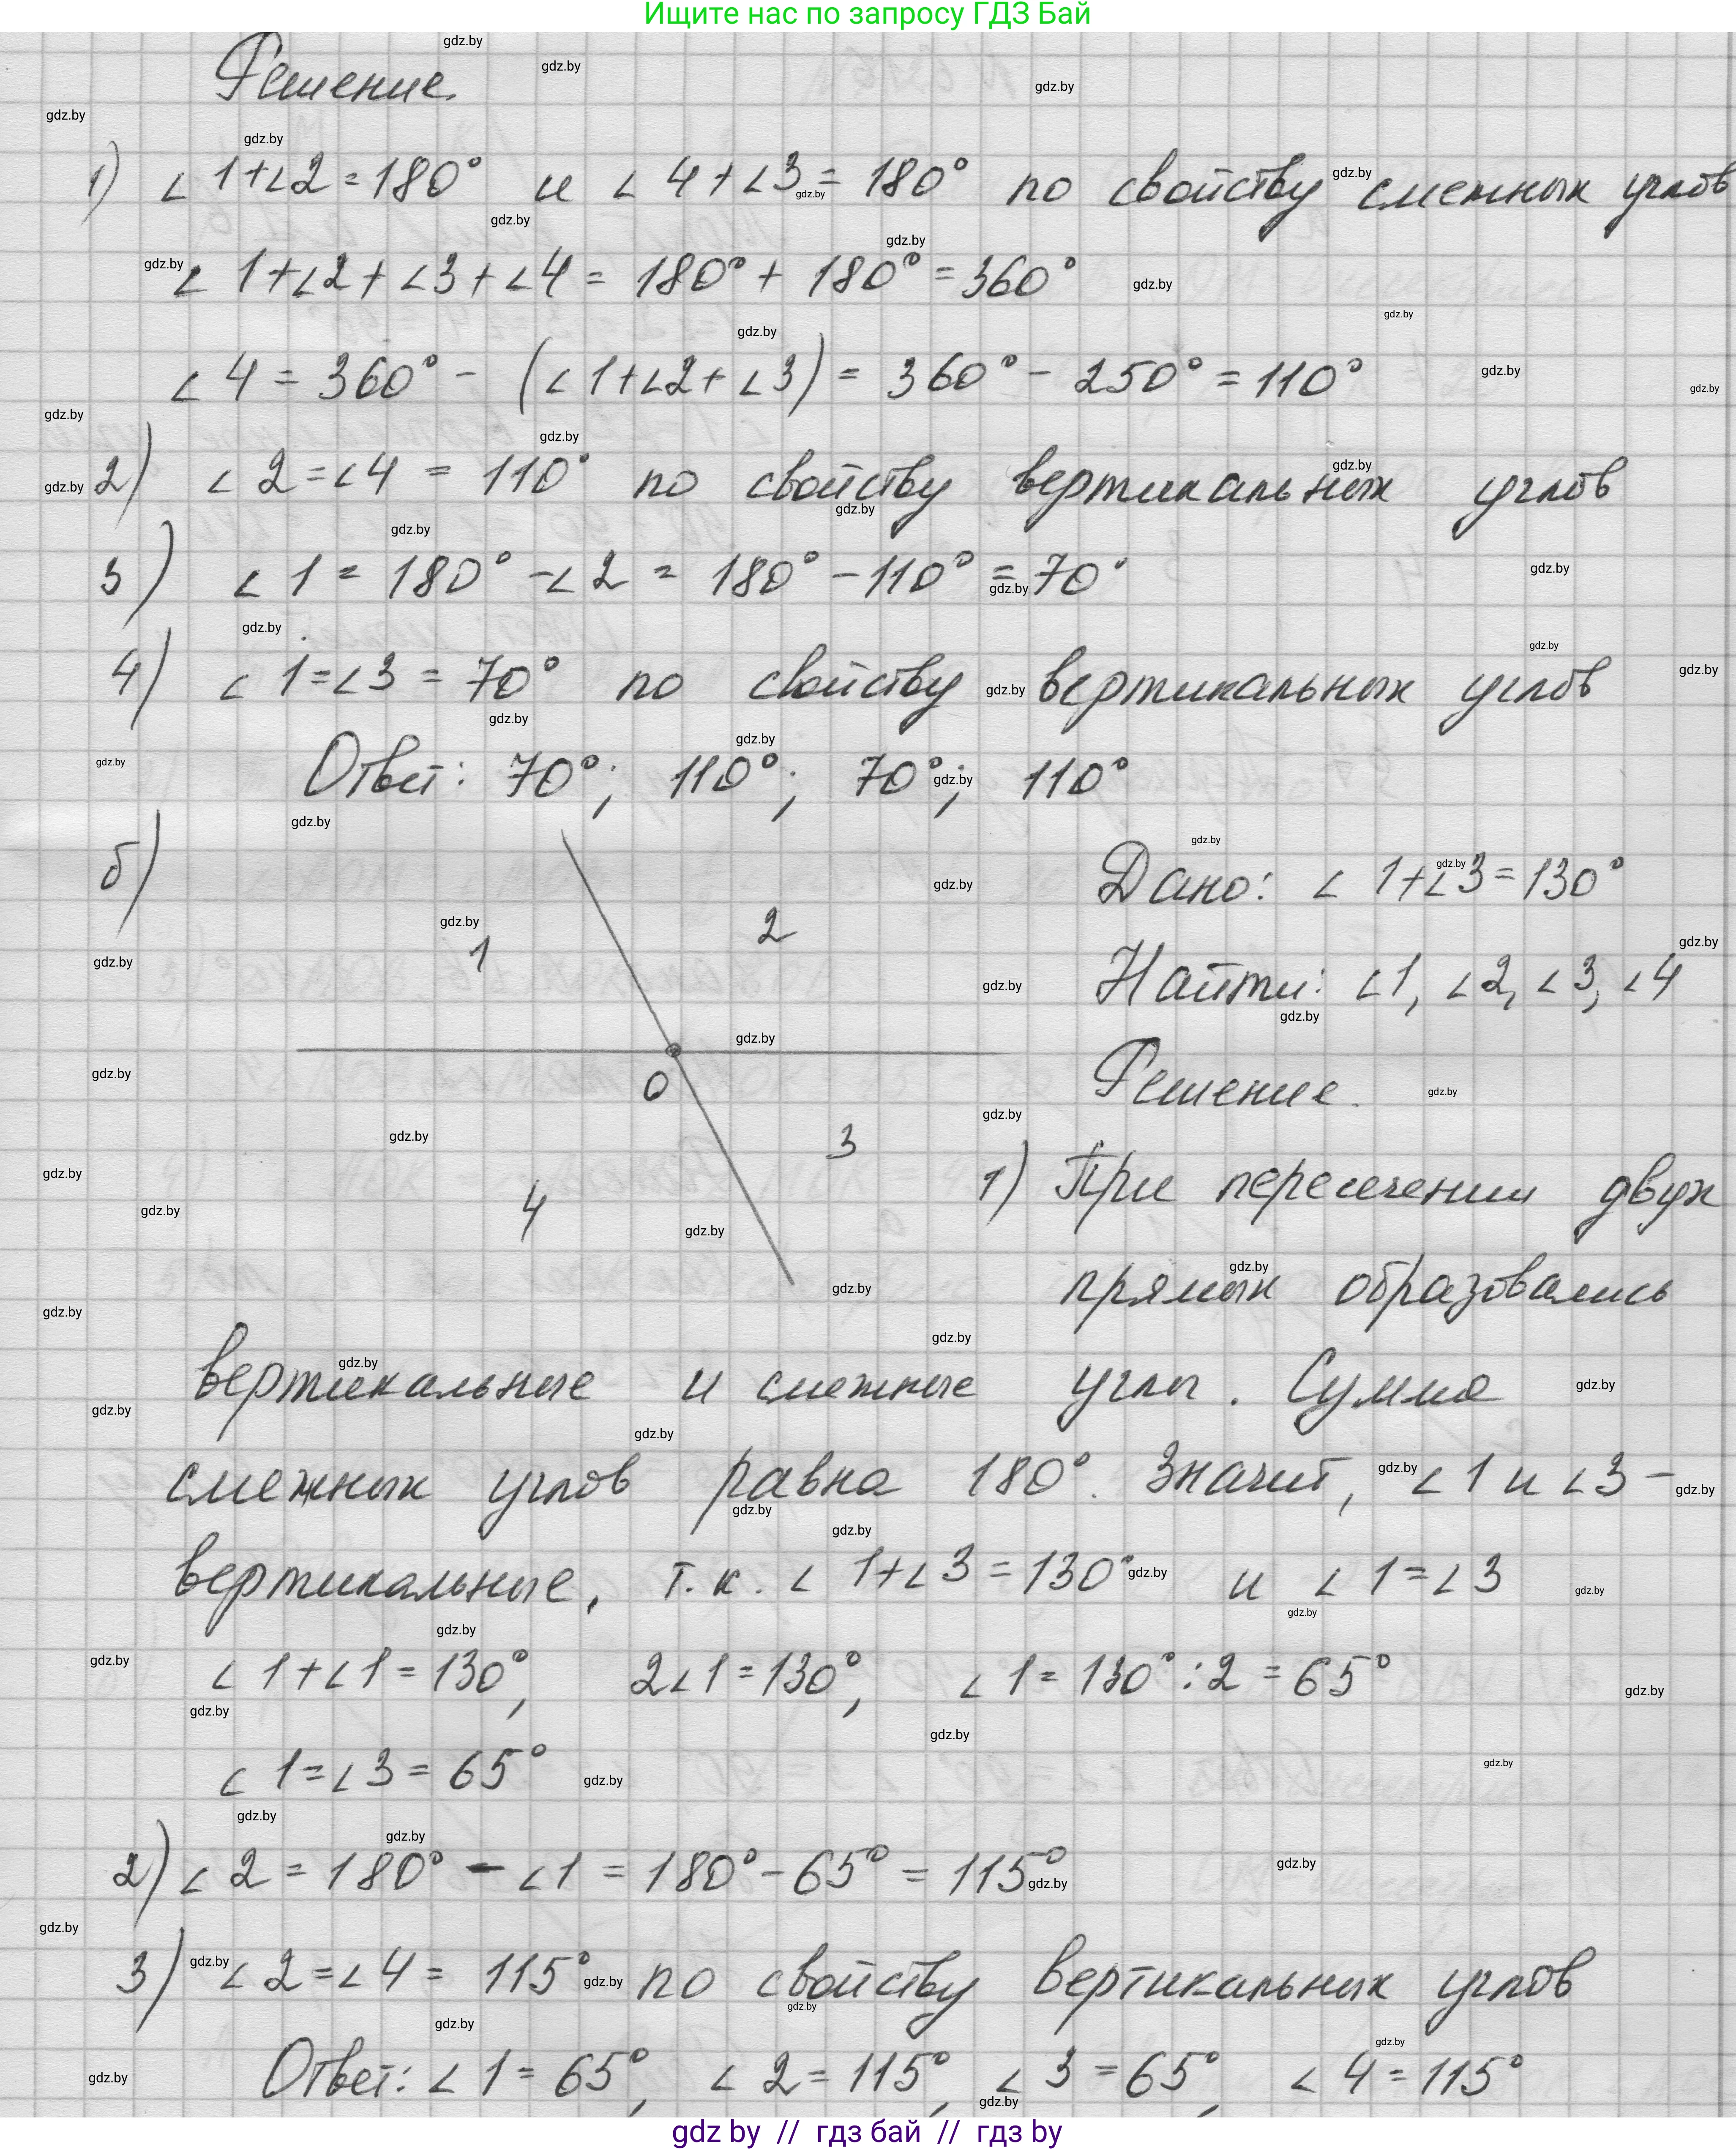 Ищите нас по запросу ГДЗ Бай
Решение.
1) ∠1+∠2=180° и ∠4+∠3=180° по свойству смежных углов
∠1+∠2+∠3+∠4=180°+180°=360°
∠4=360°-(∠1+∠2+∠3)=360°-250°=110°
2) ∠2=∠4=110° по свойству вертикальных углов
3) ∠1=180°-∠2=180°-110°=70°
4) ∠1=∠3=70° по свойству вертикальных углов
Ответ: 70°; 110°; 70°; 110°
б)
1
2
O
3
4
Дано: ∠1+∠3=130°
Найти: ∠1, ∠2, ∠3, ∠4
Решение.
1) При пересечении двух
прямых образовались
вертикальные и смежные углы. Сумма
смежных углов равна 180°. Значит, ∠1 и ∠3 –
вертикальные, т.к. ∠1+∠3=130° и ∠1=∠3
∠1+∠1=130°, 2∠1=130°, ∠1=130°:2=65°
∠1=∠3=65°
2) ∠2=180°-∠1=180°-65°=115°
3) ∠2=∠4=115° по свойству вертикальных углов
Ответ: ∠1=65°, ∠2=115°, ∠3=65°, ∠4=115°
gdz by // гдз бай // гдз by